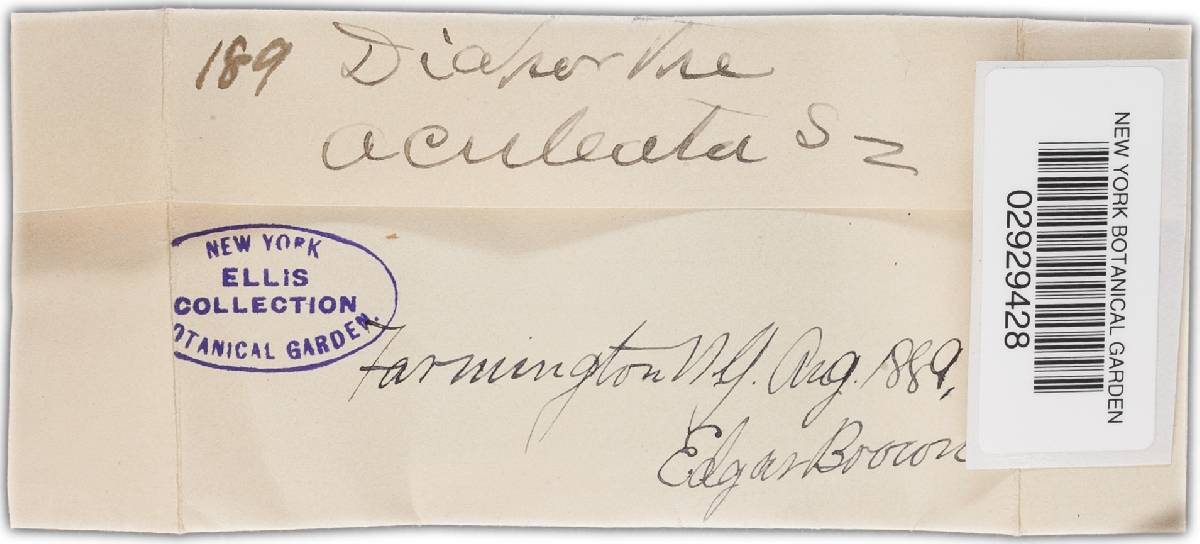 189 Diaporthe
aculeata Sz
NEW YORK
ELLIS
COLLECTION
BOTANICAL GARDEN.
Farmington N.Y. Aug. 1889,
Edgar Brown
NEW YORK BOTANICAL GARDEN
02929428